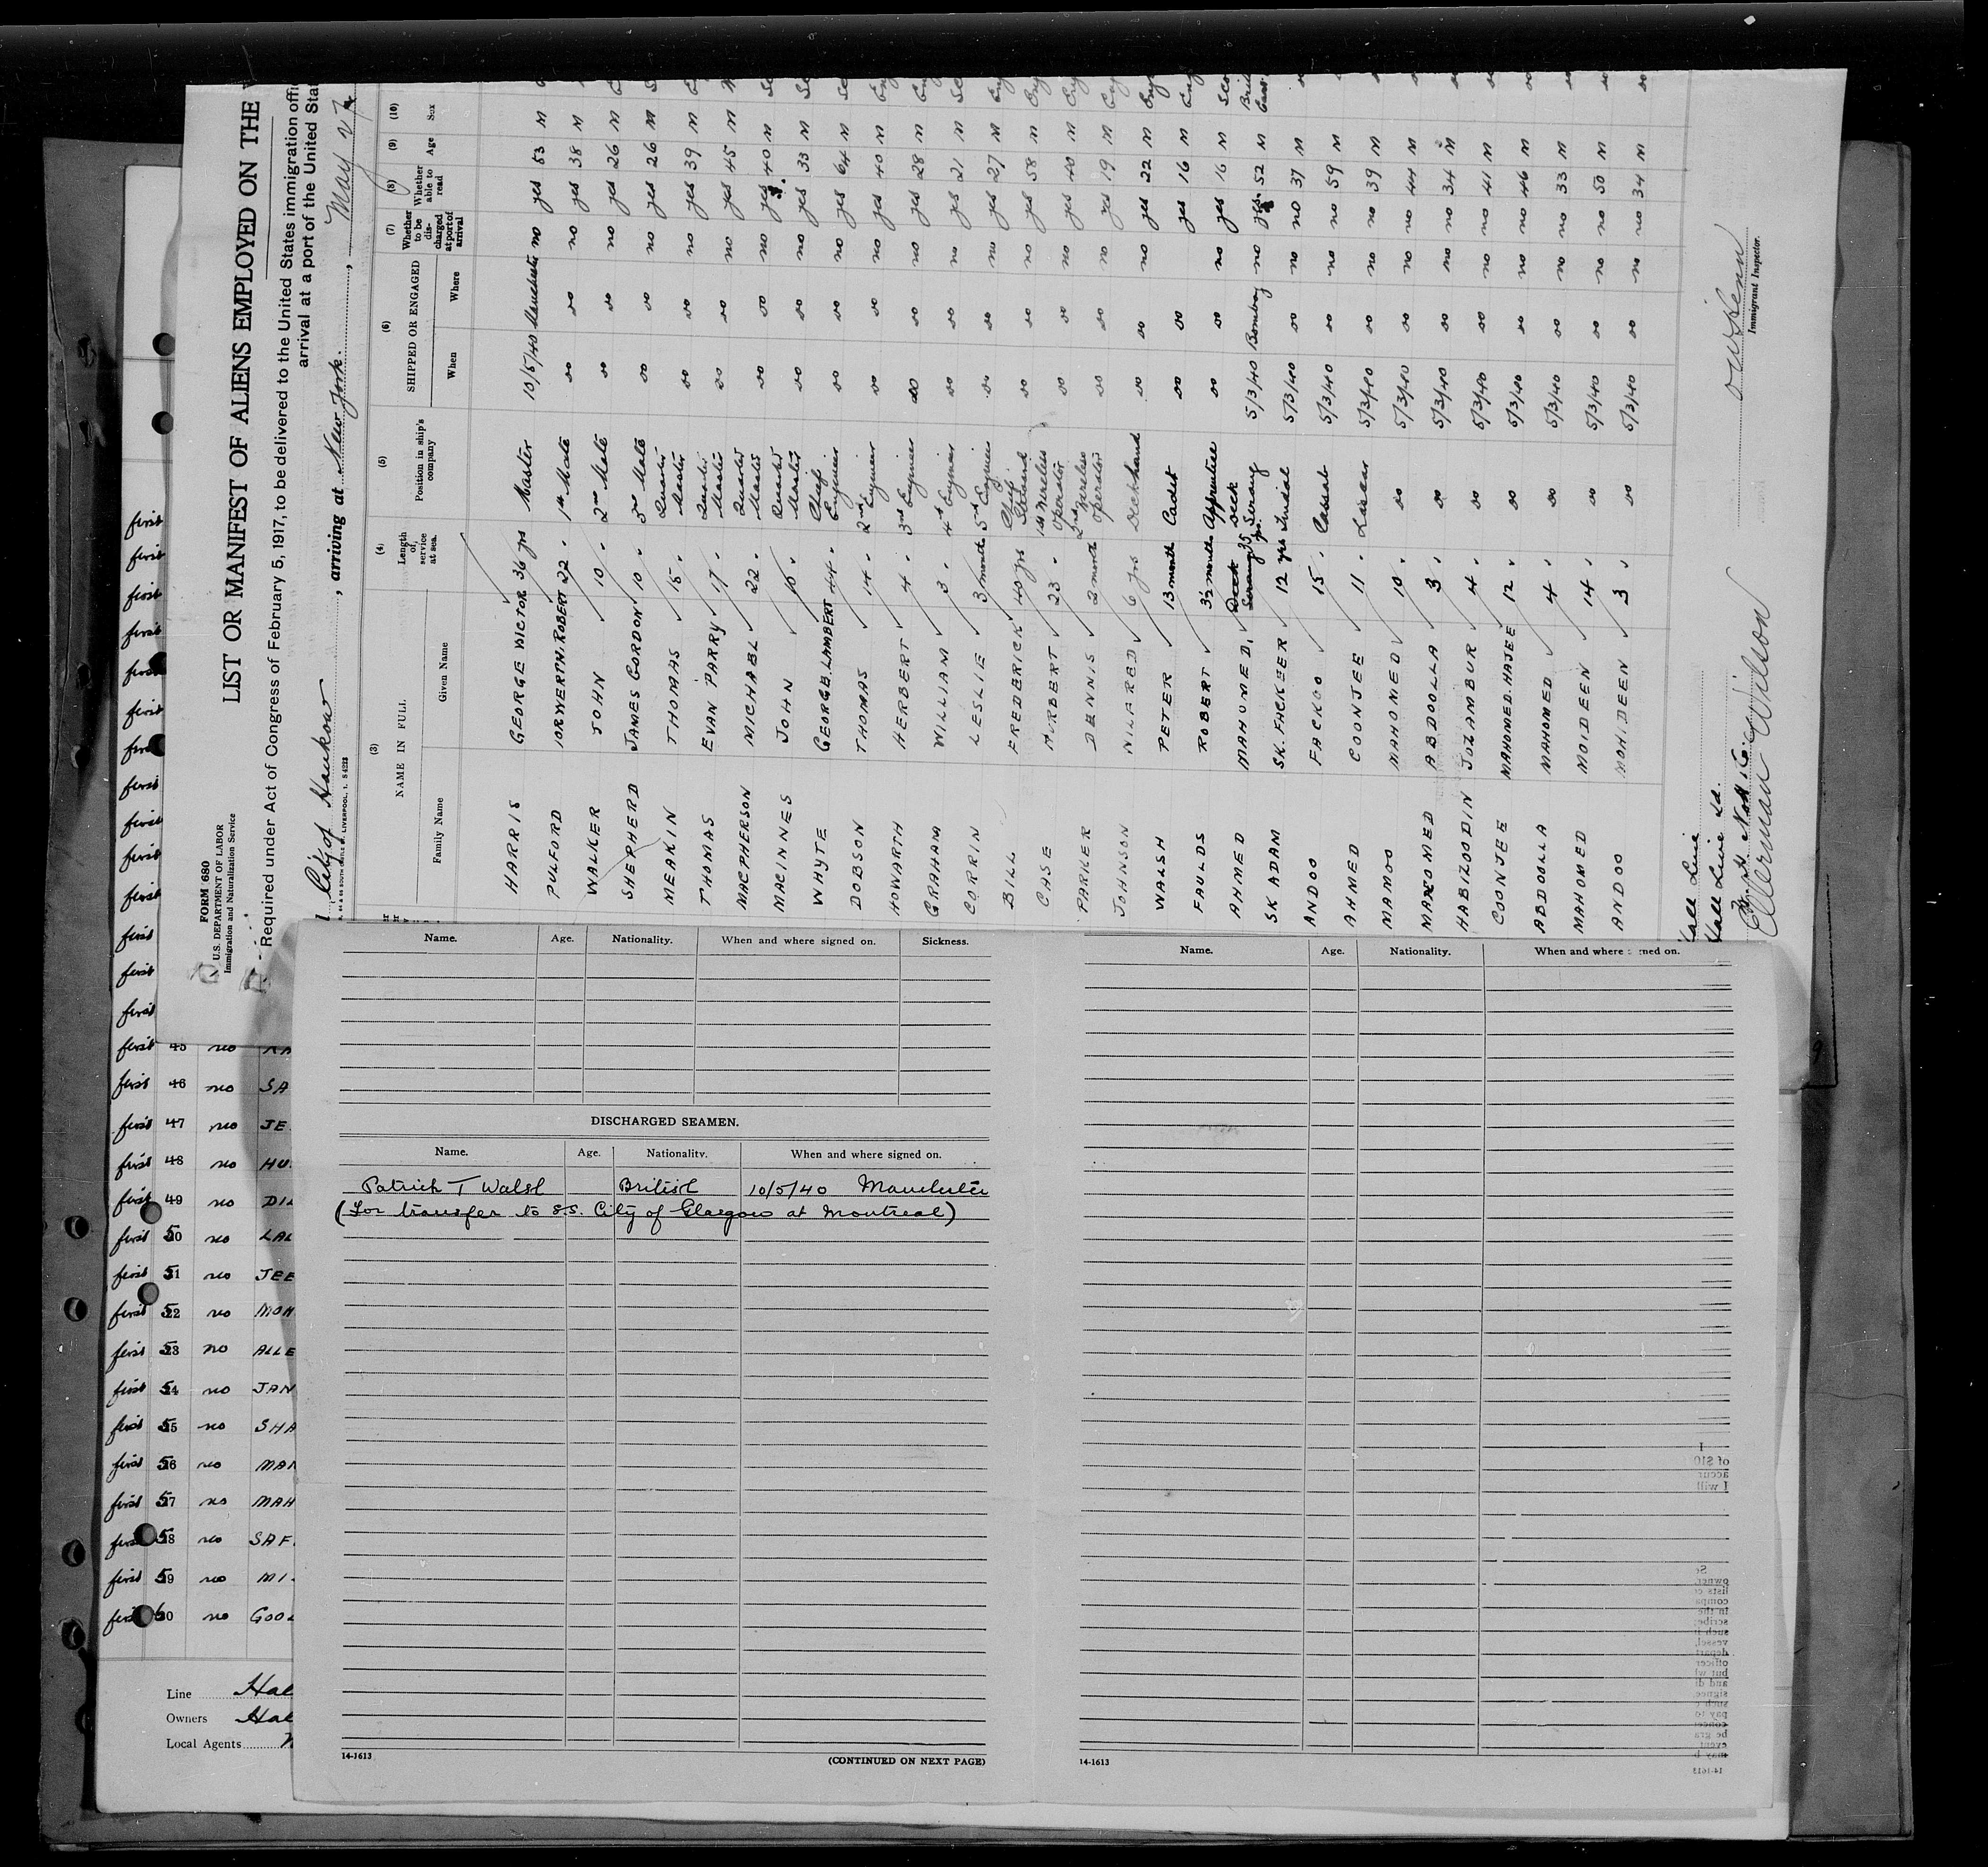 FORM 680
U.S. DEPARTMENT OF LABOR
Immigration and Naturalization Service
LIST OR MANIFEST OF ALIENS EMPLOYED ON THE
Required under Act of Congress of February 5, 1917, to be delivered to the United States immigration offi
arrival at a port of the United Stat
City of Hankow , arriving at New York. , May 27
(3) NAME IN FULL (4) Length of service at sea. (5) Position in ship's company (6) SHIPPED OR ENGAGED (7) Whether to be discharged at port of arrival (8) Whether able to read (9) Age (10) Sex
Family Name Given Name When Where
HARRIS GEORGE VICTOR 36 yrs Master 10/5/40 Manchester no yes 53 M
PULFORD IORWERTH. ROBERT 22 " 1st Mate do do no yes 38 M
WALKER JOHN 10 " 2nd Mate do do no yes 26 M
SHEPHERD JAMES GORDON 10 " 3rd Mate do do no yes 26 M
MEAKIN THOMAS 15 " Quarter Master do do no yes 39 M
THOMAS EVAN PARRY 17 " Quarter Master do do no yes 45 M
MACPHERSON MICHAEL 22 " Quarter Master do do no yes 40 M
MACINNES JOHN 10 " Quarter Master do do no yes 33 M
WHYTE GEORGE LAMBERT 44 " Chief Engineer do do no yes 64 M
DOBSON THOMAS 14 " 2nd Engineer do do no yes 40 M
HOWARTH HERBERT 4 " 3rd Engineer do do no yes 28 M
GRAHAM WILLIAM 3 " 4th Engineer do do no yes 21 M
CORRIN LESLIE 3 month 5th Engineer do do no yes 27 M
BILL FREDERICK 40 yrs Chief Steward do do no yes 58 M
CASE HERBERT 23 " 1st Wireless Operator do do no yes 40 M
PARKER DENNIS 2 month 2nd Wireless Operator do do no yes 19 M
JOHNSON NILARED 6 yrs Deckhand do do no yes 22 M
WALSH PETER 13 month Cadet do do yes 16 M
FAULDS ROBERT 3½ month Apprentice do do no yes 16 M
AHMED MAHOMED. Deck Serang 35 yrs Deck Serang 5/3/40 Bombay no yes. 52 M
SK ADAM SK. FACKEER 12 yrs Tindal 5/3/40 do no no 37 M
ANDOO FACKOO 15 " Cassab 5/3/40 do no no 59 M
AHMED COONJEE 11 " Lascar 5/3/40 do no no 39 M
MAMOO MAHOMED 10 " do 5/3/40 do no no 44 M
MAHOMED ABDOOLLA 3 " do 5/3/40 do no no 34 M
HABIZOODIN JOLAMBUR 4 " do 5/3/40 do no no 41 M
COONJEE MAHOMED. HAJEE 12 " do 5/3/40 do no no 46 M
ABDOOLLA MAHOMED 4 " do 5/3/40 do no no 33 M
MAHOMED MOIDEEN 14 " do 5/3/40 do no no 50 M
ANDOO MOHIDEEN 3 " do 5/3/40 do no no 34 M
Hall Line
Hall Line Ld.
Immigrant Inspector.
Name. Age. Nationality. When and where signed on. Sickness.
DISCHARGED SEAMEN.
Name. Age. Nationality. When and where signed on.
Patrick T Walsh British 10/5/40 Manchester
(For transfer to S.S. City of Glasgow at Montreal)
14-1613
(CONTINUED ON NEXT PAGE)
Name. Age. Nationality. When and where signed on.
14-1613
first 45 no
first 46 no SA
first 47 no JE
first 48 no HU
first 49 no DIL
first 50 no LAL
first 51 no JEE
first 52 no MOH
first 53 no ALLE
first 54 no JAN
first 55 no SHA
first 56 no MAH
first 57 no MAH
first 58 no SAF
first 59 no MI
first 60 no GOOL
Line Hal
Owners Hal
Local Agents